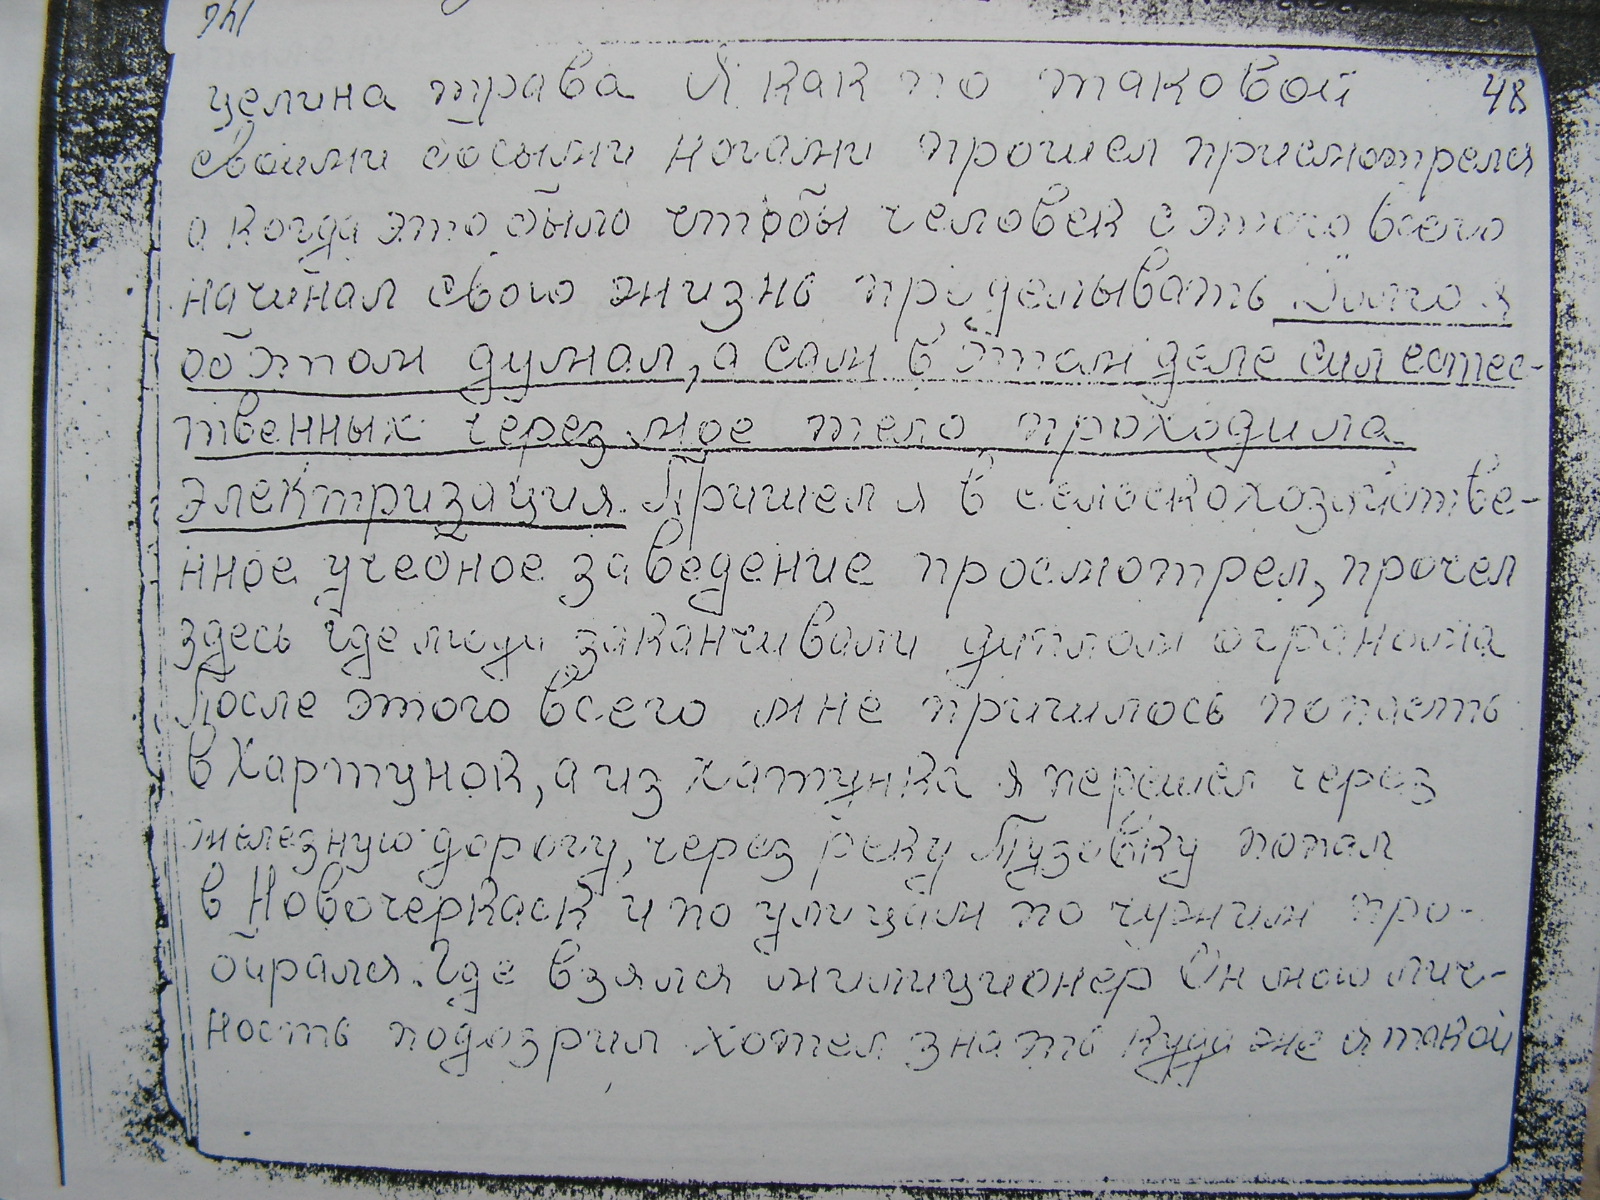 целина трава Я как то таковой 48
своими босыми ногами прошел присмотрелся
а когда это было чтобы человек с этого всего
начинал свою жизнь приделывать Долго я
об этом думал, а сам в этом деле сил естес-
твенных через мое тело проходила
электризация. Пришел я в селоскохозяйстве-
нное учебное заведение просмотрел, прочел
здесь где люди заканчивали диплом огранома
После этого всего мне пришлось попасть
в Хартунок, а из хатунка я перешел через
железную дорогу, через реку Тузовку попал
в Новочеркаск и по улицам по чужим про-
бирался. Где взялся милиционер Он мою лич-
ность подозрил хотел знать куда же я такой